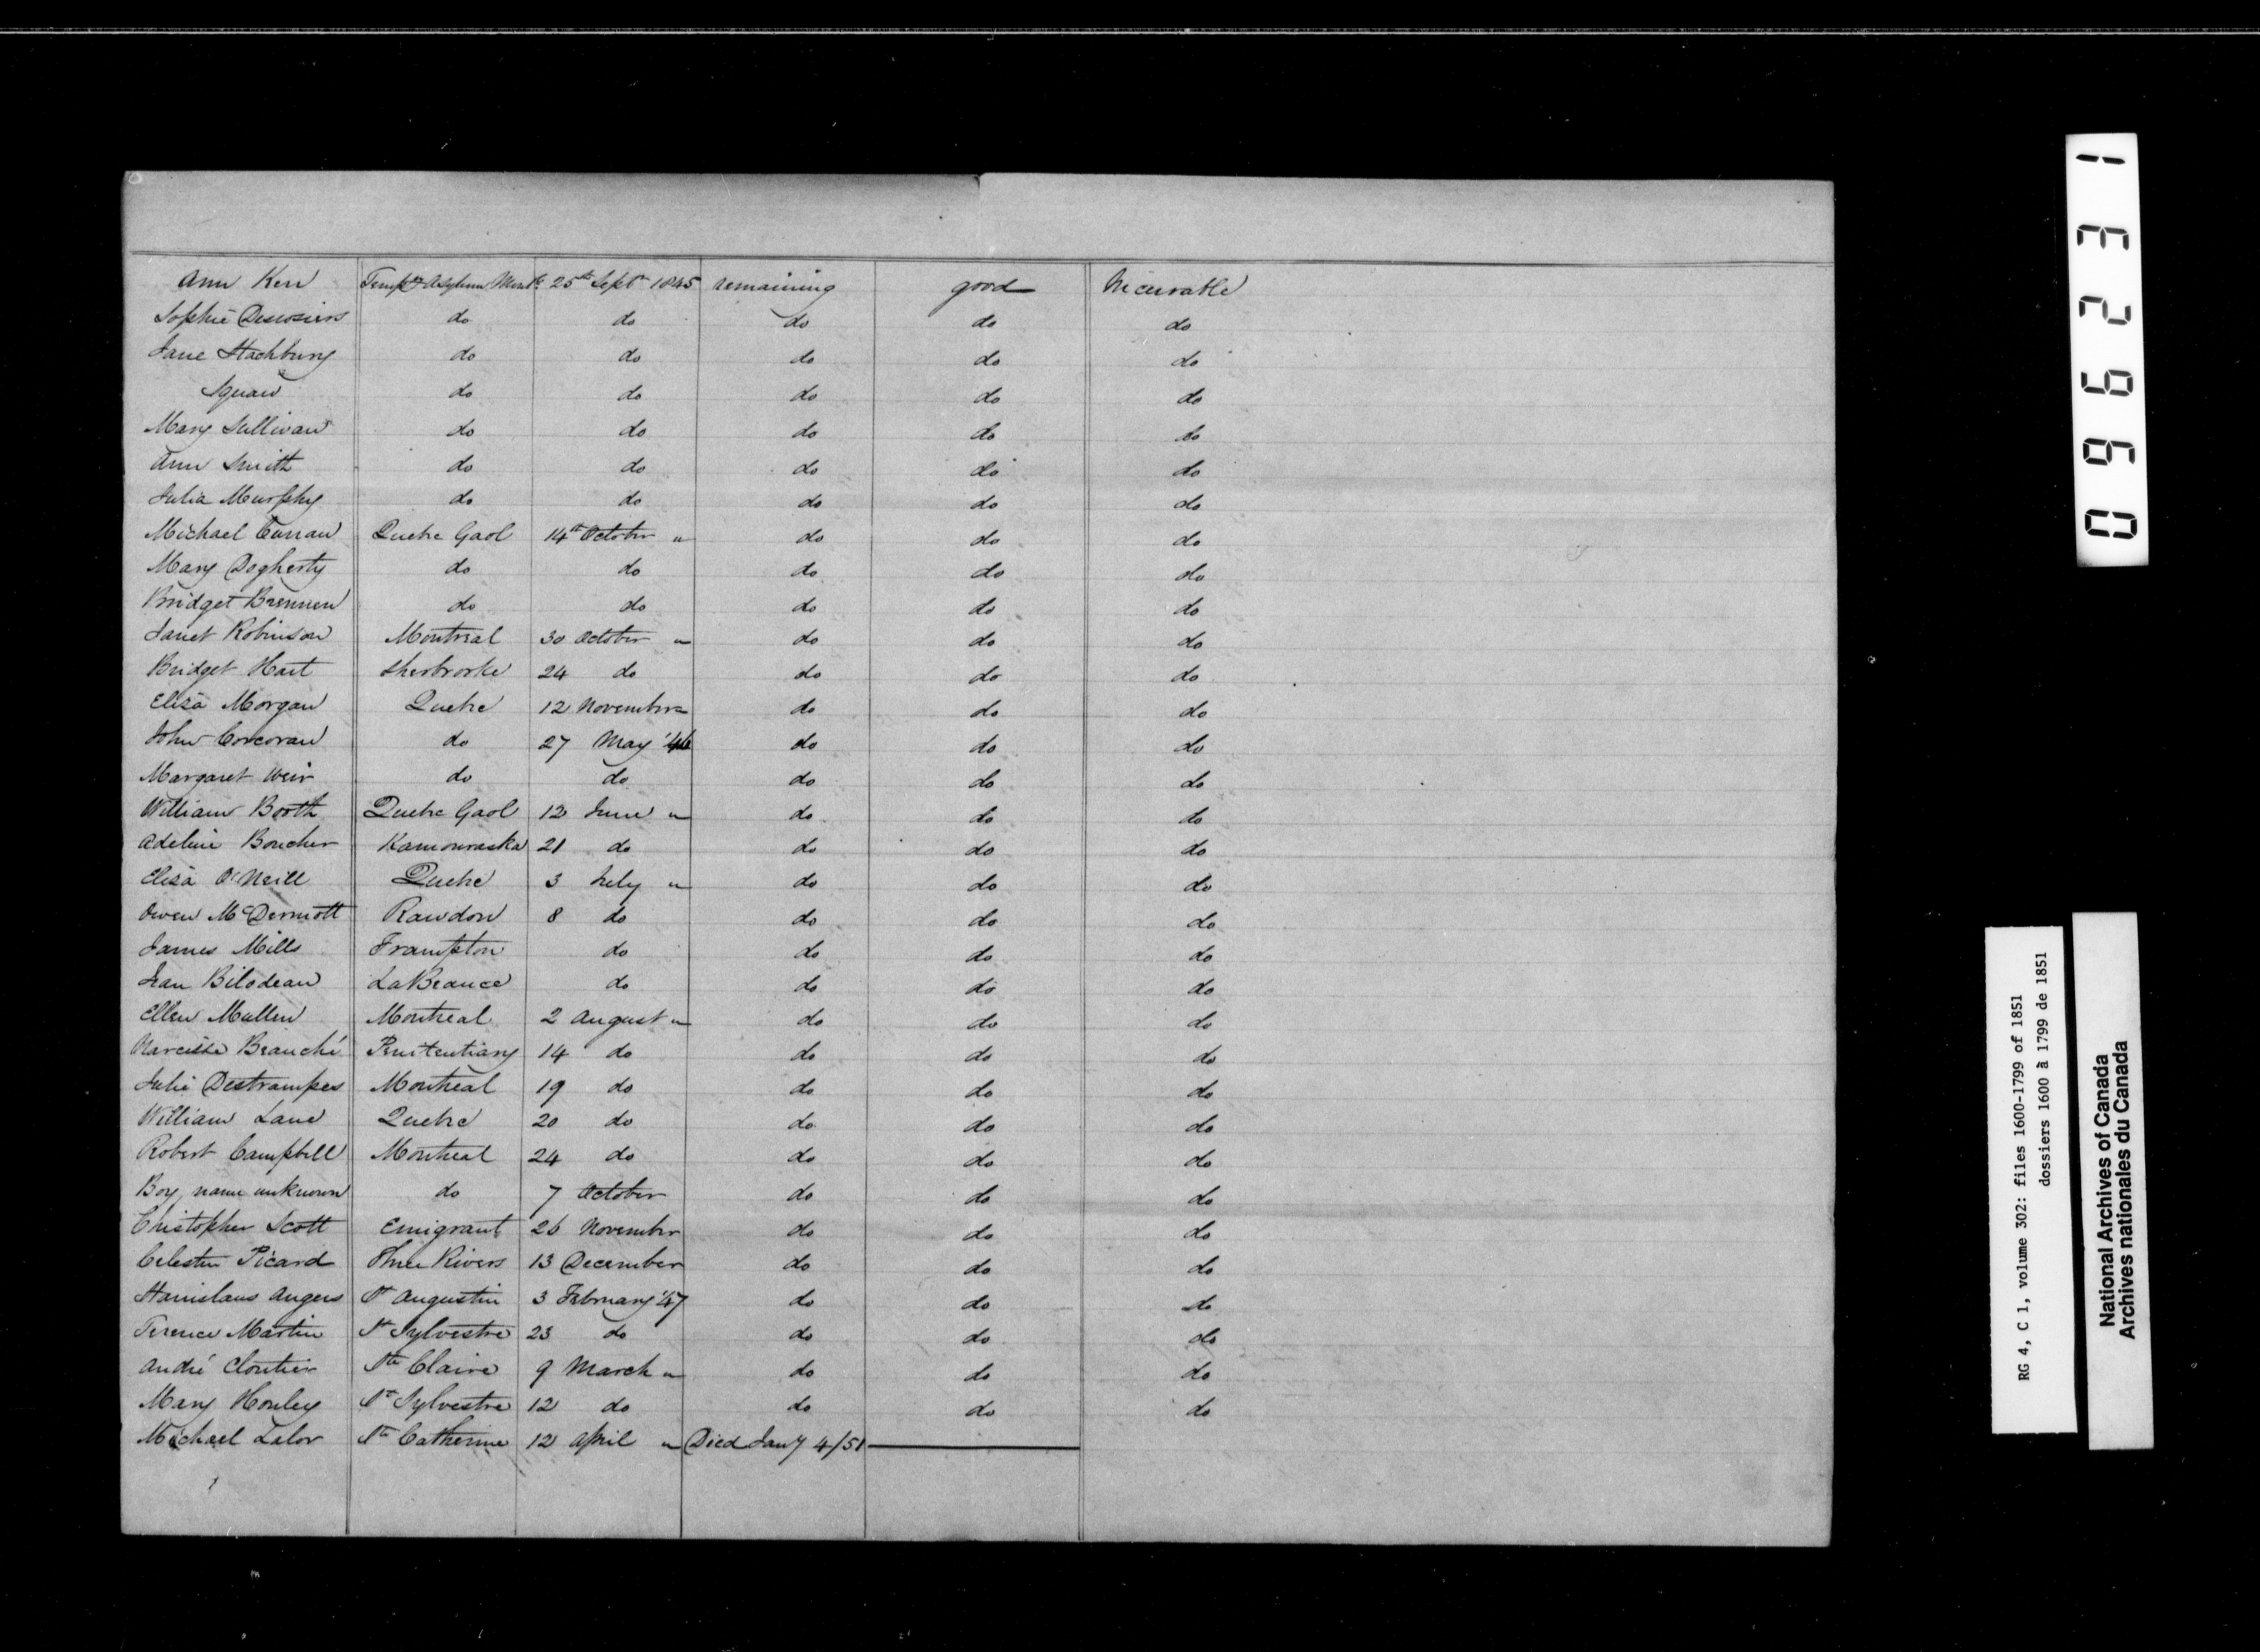 Ann Kerr Tempy Asylum Montl 25th Septr 1845 remaining good Incurable
Sophie Desrosiers do do do do do
Jane Hachbury do do do do do
Squaw do do do do do
Mary Sullivan do do do do do
Ann Smith do do do do do
Julia Murphy do do do do do
Michael Curran Quebc Gaol 14th October " do do do
Mary Dogherty do do do do do
Bridget Brennen do do do do do
Janet Robinson Montreal 30 October " do do do
Bridget Hart Sherbrooke 24 do do do do
Eliza Morgan Quebc 12 November " do do do
John Corcoran do 27 May '46 do do do
Margaret Weir do do do do do
William Booth Quebc Gaol 12 June " do do do
Adeline Boucher Kamouraska 21 do do do do
Eliza O'Neill Quebc 3 July " do do do
Owen McDermott Rawdon 8 do do do do
James Mills Frampton do do do do
Jean Bilodeau LaBeauce do do do do
Ellen Mullen Montreal 2 August " do do do
Narcisse Branché Penitentiary 14 do do do do
Julie Destrampes Montreal 19 do do do do
William Lane Quebc 20 do do do do
Robert Campbell Montreal 24 do do do do
Boy, name unknown do 7 October do do do
Christopher Scott Emigrant 26 November do do do
Celestin Picard Three Rivers 13 December do do do
Stanislaus Angers St Augustin 3 February '47 do do do
Terence Martin St Sylvestre 23 do do do do
André Cloutier Ste Claire 9 March " do do do
Mary Houley St Sylvestre 12 do do do do
Michael Lalor Ste Catherine 12 April " Died Jany 4/51
096231
RG 4, C 1, volume 302: files 1600-1799 of 1851
dossiers 1600 à 1799 de 1851
National Archives of Canada
Archives nationales du Canada